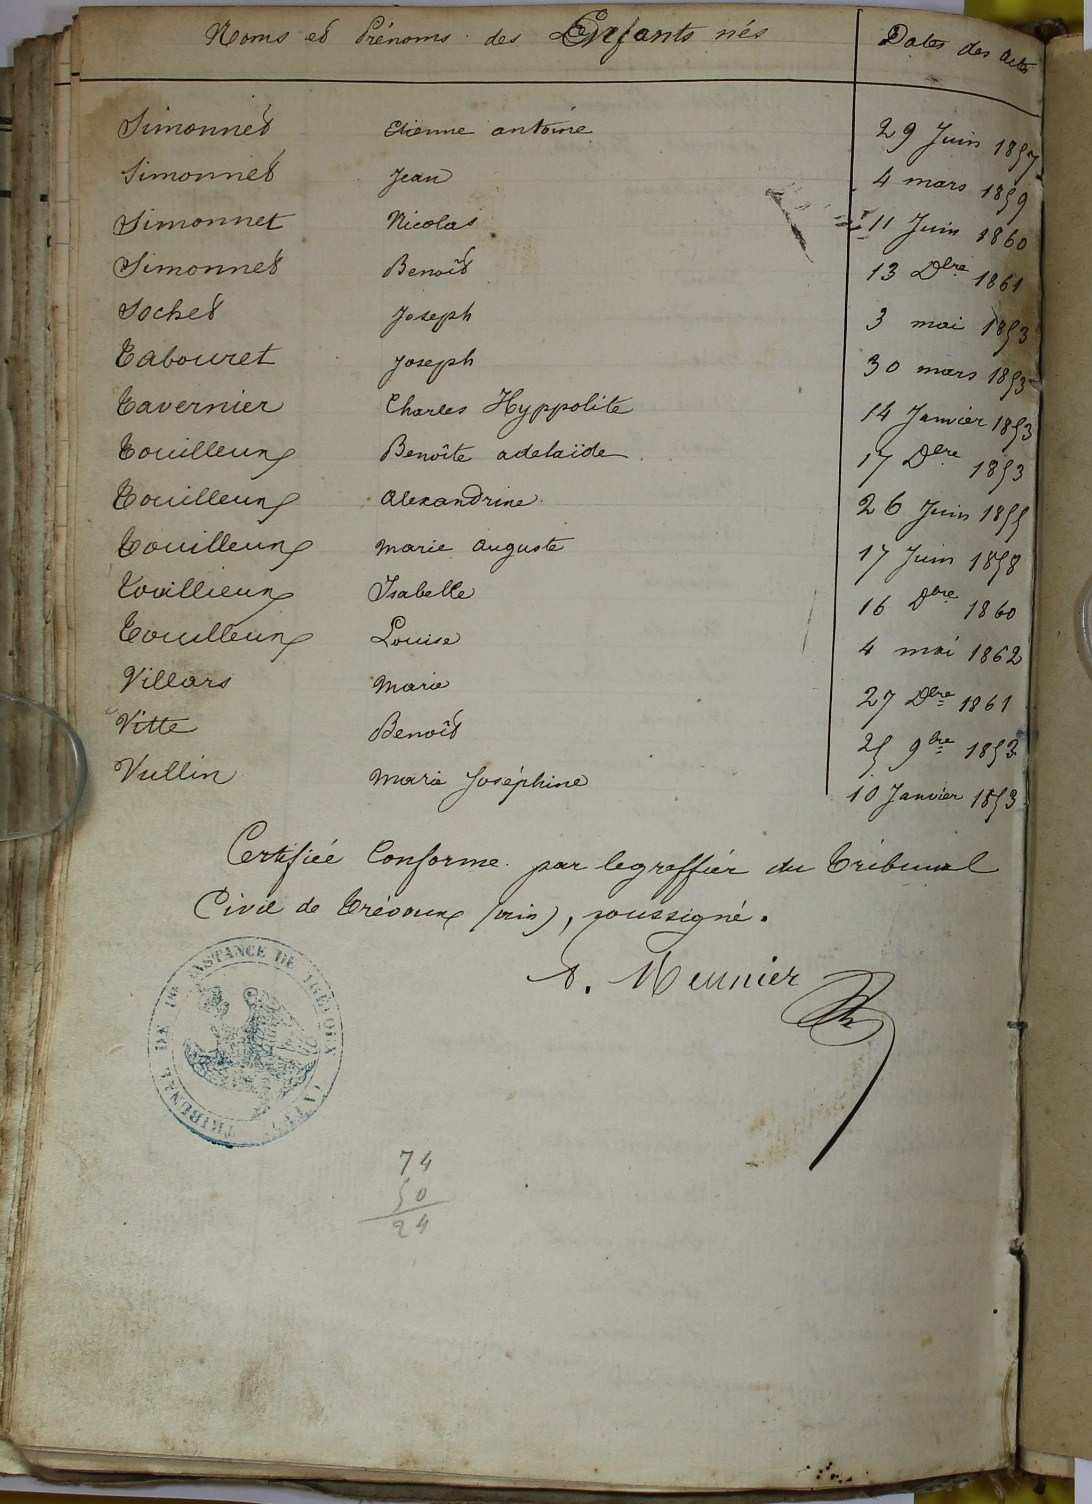 Noms et Prénoms des Enfants nés Dates des actes
Simonnet Etienne antoine 29 Juin 1857
Simonnet Jean 4 mars 1859
Simonnet Nicolas 11 Juin 1860
Simonnet Benoît 13 Dbre 1861
Sochet Joseph 3 mai 1853
Tabouret Joseph 30 mars 1853
Tavernier Charles Hyppolite 14 Janvier 1853
Touilleux Benoîte adelaïde 17 Dbre 1853
Touilleux alexandrine 26 Juin 1855
Touilleux marie auguste 17 Juin 1858
Touillieux Isabelle 16 Dbre 1860
Touilleux Louise 4 mai 1862
Villars Marie 27 Dbre 1861
Vitte Benoît 25 9bre 1853
Vullin Marie Joséphine 10 Janvier 1853
Certifiée Conforme par le greffier du Tribunal
Civil de Trévoux (ain), soussigné.
A. Meunier
TRIBUNAL DE 1RE INSTANCE DE TREVOUX (AIN)
74
50
24